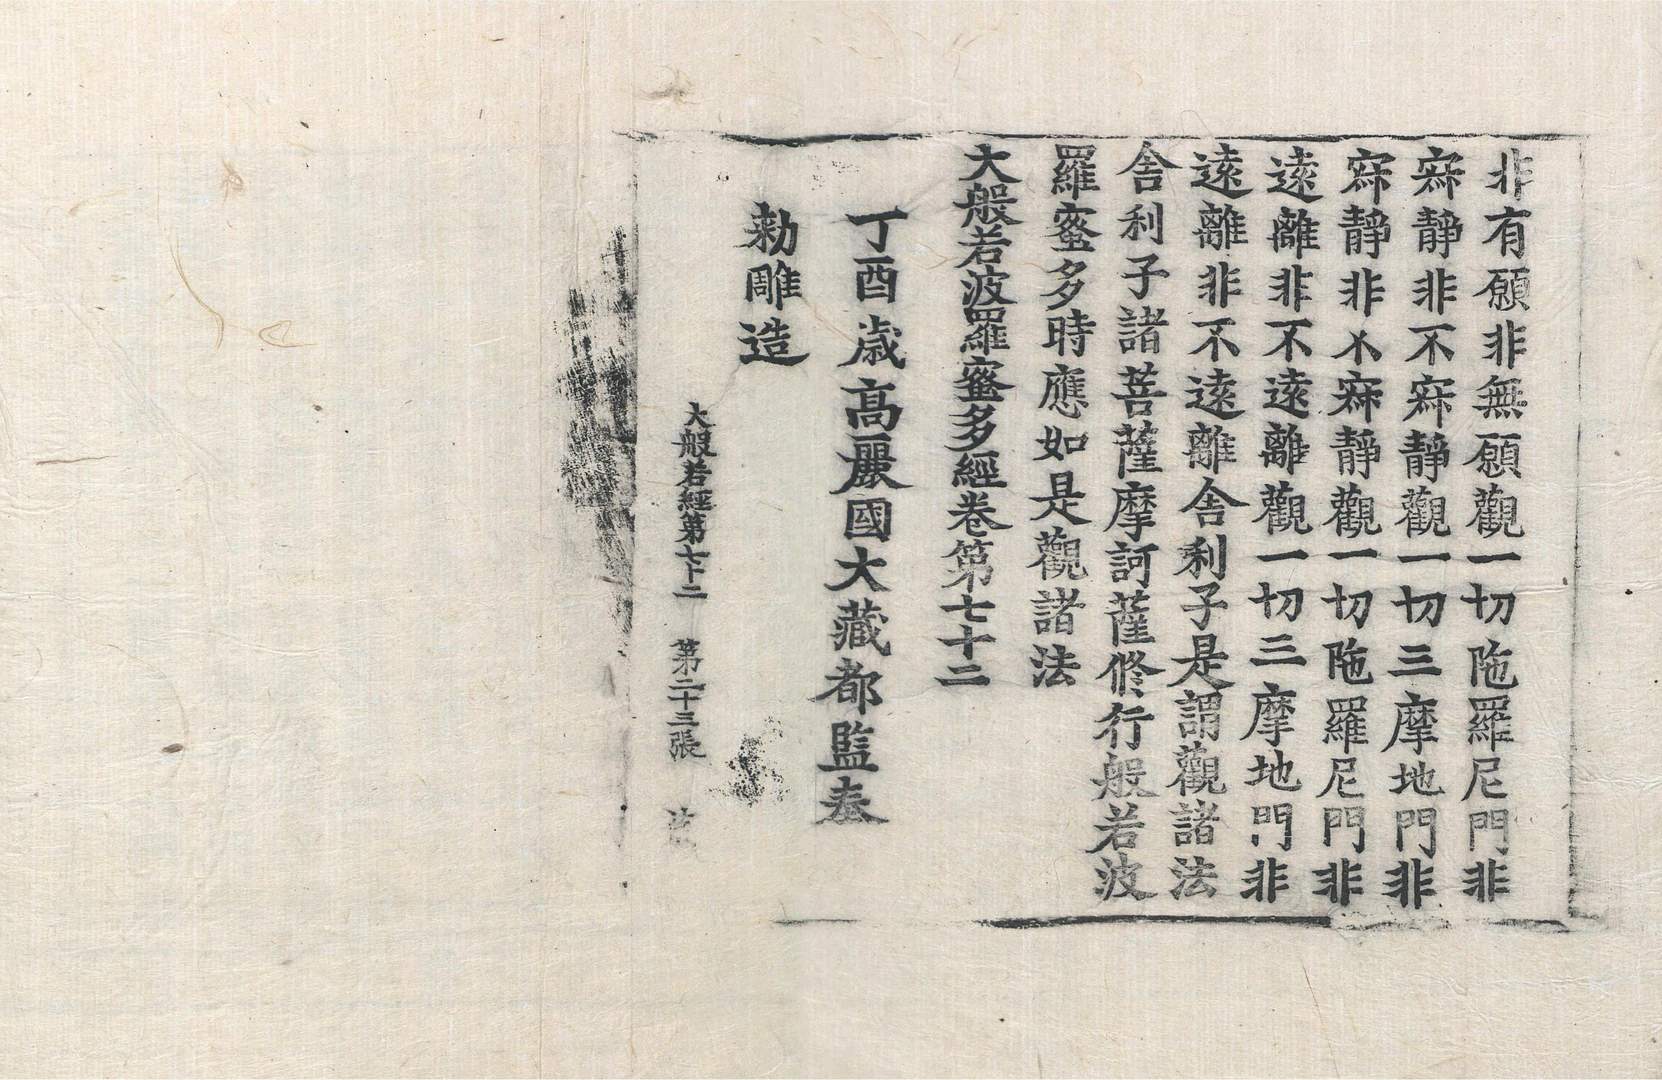 非有願非無願觀一切陁羅尼門非
寂靜非不寂靜觀一切三摩地門非
寂靜非不寂靜觀一切陁羅尼門非
遠離非不遠離觀一切三摩地門非
遠離非不遠離舍利子是謂觀諸法
舍利子諸菩薩摩訶薩修行般若波
羅蜜多時應如是觀諸法
大般若波羅蜜多經卷第七十二
丁酉歲高麗國大藏都監奉
勅雕造
大般若經第七十二 第二十三張